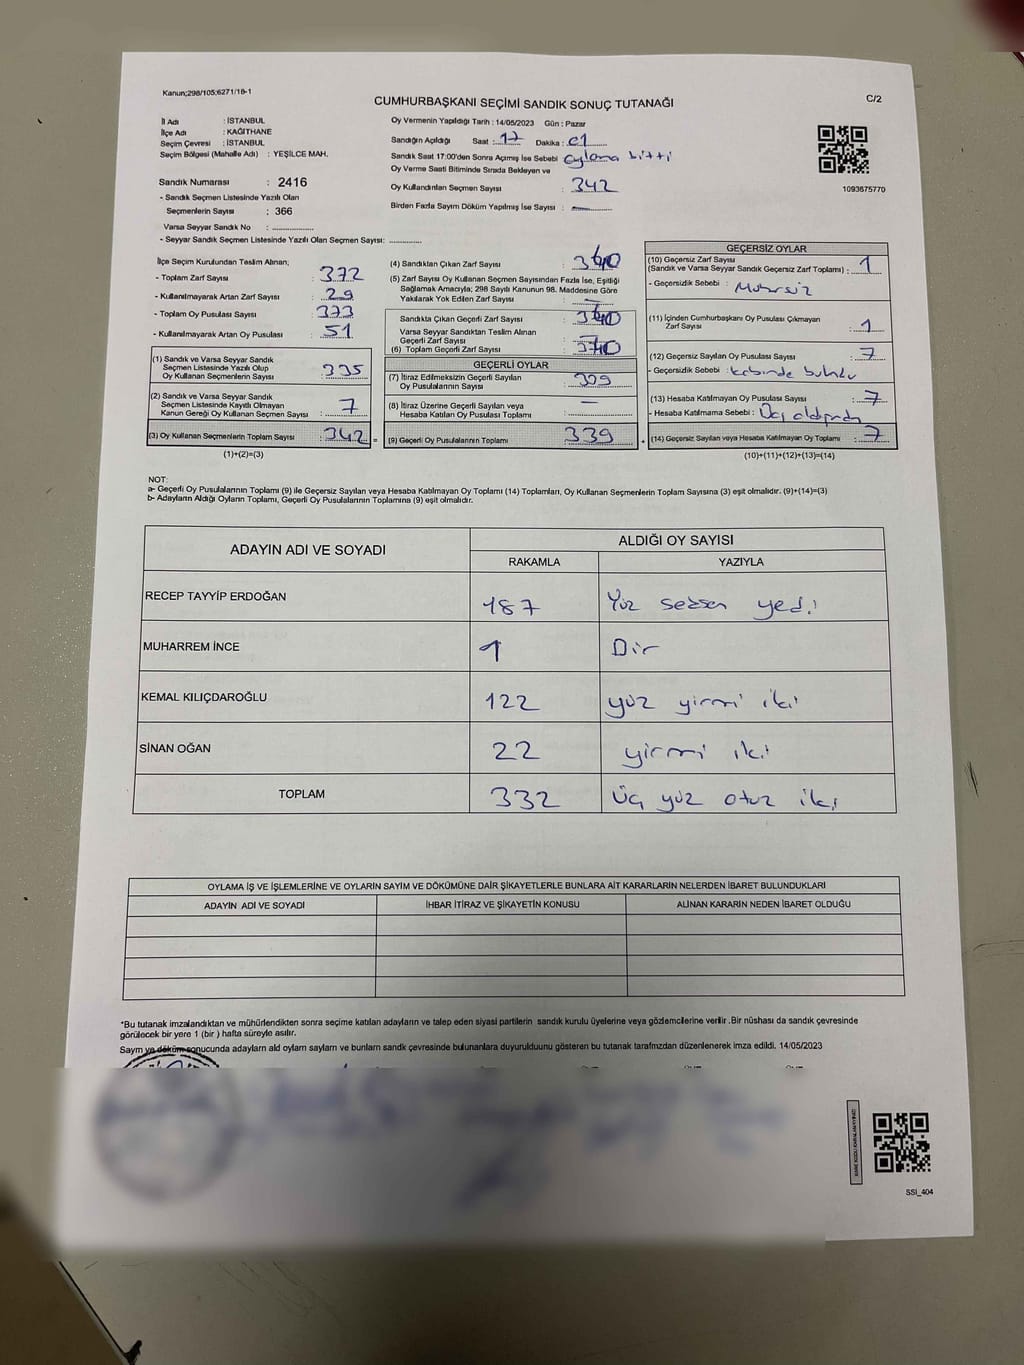 Kanun;298/105;6271/18-1
CUMHURBAŞKANI SEÇİMİ SANDIK SONUÇ TUTANAĞI
C/2
İl Adı : İSTANBUL
İlçe Adı : KAĞITHANE
Seçim Çevresi : İSTANBUL
Seçim Bölgesi (Mahalle Adı) : YEŞİLCE MAH.
Sandık Numarası : 2416
- Sandık Seçmen Listesinde Yazılı Olan
Seçmenlerin Sayısı : 366
Varsa Seyyar Sandık No :
- Seyyar Sandık Seçmen Listesinde Yazılı Olan Seçmen Sayısı:
Oy Vermenin Yapıldığı Tarih : 14/05/2023 Gün : Pazar
Sandığın Açıldığı Saat : 17 Dakika : 01
Sandık Saat 17:00'den Sonra Açımış İse Sebebi oylama bitti
Oy Verme Saati Bitiminde Sırada Bekleyen ve
Oy Kullandırılan Seçmen Sayısı : 342
Birden Fazla Sayım Döküm Yapılmış İse Sayısı : —
1093675770
İlçe Seçim Kurulundan Teslim Alınan;
- Toplam Zarf Sayısı : 372
- Kullanılmayarak Artan Zarf Sayısı : 29
- Toplam Oy Pusulası Sayısı : 373
- Kullanılmayarak Artan Oy Pusulası : 51
(1) Sandık ve Varsa Seyyar Sandık
Seçmen Listesinde Yazılı Olup
Oy Kullanan Seçmenlerin Sayısı : 335
(2) Sandık ve Varsa Seyyar Sandık
Seçmen Listesinde Kayıtlı Olmayan
Kanun Gereği Oy Kullanan Seçmen Sayısı : 7
(3) Oy Kullanan Seçmenlerin Toplam Sayısı : 342 =
(1)+(2)=(3)
(4) Sandıktan Çıkan Zarf Sayısı : 340
(5) Zarf Sayısı Oy Kullanan Seçmen Sayısından Fazla İse, Eşitliği
Sağlamak Amacıyla; 298 Sayılı Kanunun 98. Maddesine Göre
Yakılarak Yok Edilen Zarf Sayısı : —
Sandıkta Çıkan Geçerli Zarf Sayısı : 340
Varsa Seyyar Sandıktan Teslim Alınan
Geçerli Zarf Sayısı : —
(6) Toplam Geçerli Zarf Sayısı : 340
GEÇERLİ OYLAR
(7) İtiraz Edilmeksizin Geçerli Sayılan
Oy Pusulalarının Sayısı : 339
(8) İtiraz Üzerine Geçerli Sayılan veya
Hesaba Katılan Oy Pusulası Toplamı : —
(9) Geçerli Oy Pusulalarının Toplamı : 339
GEÇERSİZ OYLAR
(10) Geçersiz Zarf Sayısı
(Sandık ve Varsa Seyyar Sandık Geçersiz Zarf Toplamı) : 1
- Geçersizlik Sebebi : Mühürsüz
(11) İçinden Cumhurbaşkanı Oy Pusulası Çıkmayan
Zarf Sayısı : 1
(12) Geçersiz Sayılan Oy Pusulası Sayısı : 7
- Geçersizlik Sebebi : kabinde bulundu
(13) Hesaba Katılmayan Oy Pusulası Sayısı : 7
- Hesaba Katılmama Sebebi :
(14) Geçersiz Sayılan veya Hesaba Katılmayan Oy Toplamı : 7
(10)+(11)+(12)+(13)=(14)
NOT:
a- Geçerli Oy Pusulalarının Toplamı (9) ile Geçersiz Sayılan veya Hesaba Katılmayan Oy Toplamı (14) Toplamları, Oy Kullanan Seçmenlerin Toplam Sayısına (3) eşit olmalıdır. (9)+(14)=(3)
b- Adayların Aldığı Oyların Toplamı, Geçerli Oy Pusulalarının Toplamına (9) eşit olmalıdır.
ADAYIN ADI VE SOYADI
ALDIĞI OY SAYISI
RAKAMLA YAZIYLA
RECEP TAYYİP ERDOĞAN 187 Yüz seksen yedi
MUHARREM İNCE 1 Bir
KEMAL KILIÇDAROĞLU 122 yüz yirmi iki
SİNAN OĞAN 22 yirmi iki
TOPLAM 332 Üç yüz otuz iki
OYLAMA İŞ VE İŞLEMLERİNE VE OYLARIN SAYIM VE DÖKÜMÜNE DAİR ŞİKAYETLERLE BUNLARA AİT KARARLARIN NELERDEN İBARET BULUNDUKLARI
ADAYIN ADI VE SOYADI İHBAR İTİRAZ VE ŞİKAYETİN KONUSU ALINAN KARARIN NEDEN İBARET OLDUĞU
*Bu tutanak imzalandıktan ve mühürlendikten sonra seçime katılan adayların ve talep eden siyasi partilerin sandık kurulu üyelerine veya gözlemcilerine verilir .Bir nüshası da sandık çevresinde
görülecek bir yere 1 (bir ) hafta süreyle asılır.
Sayım ve döküm sonucunda adayların ald oyların sayların ve bunların sandk çevresinde bulunanlara duyurulduunu gösteren bu tutanak tarafmzdan düzenlenerek imza edildi. 14/05/2023
SSI_404